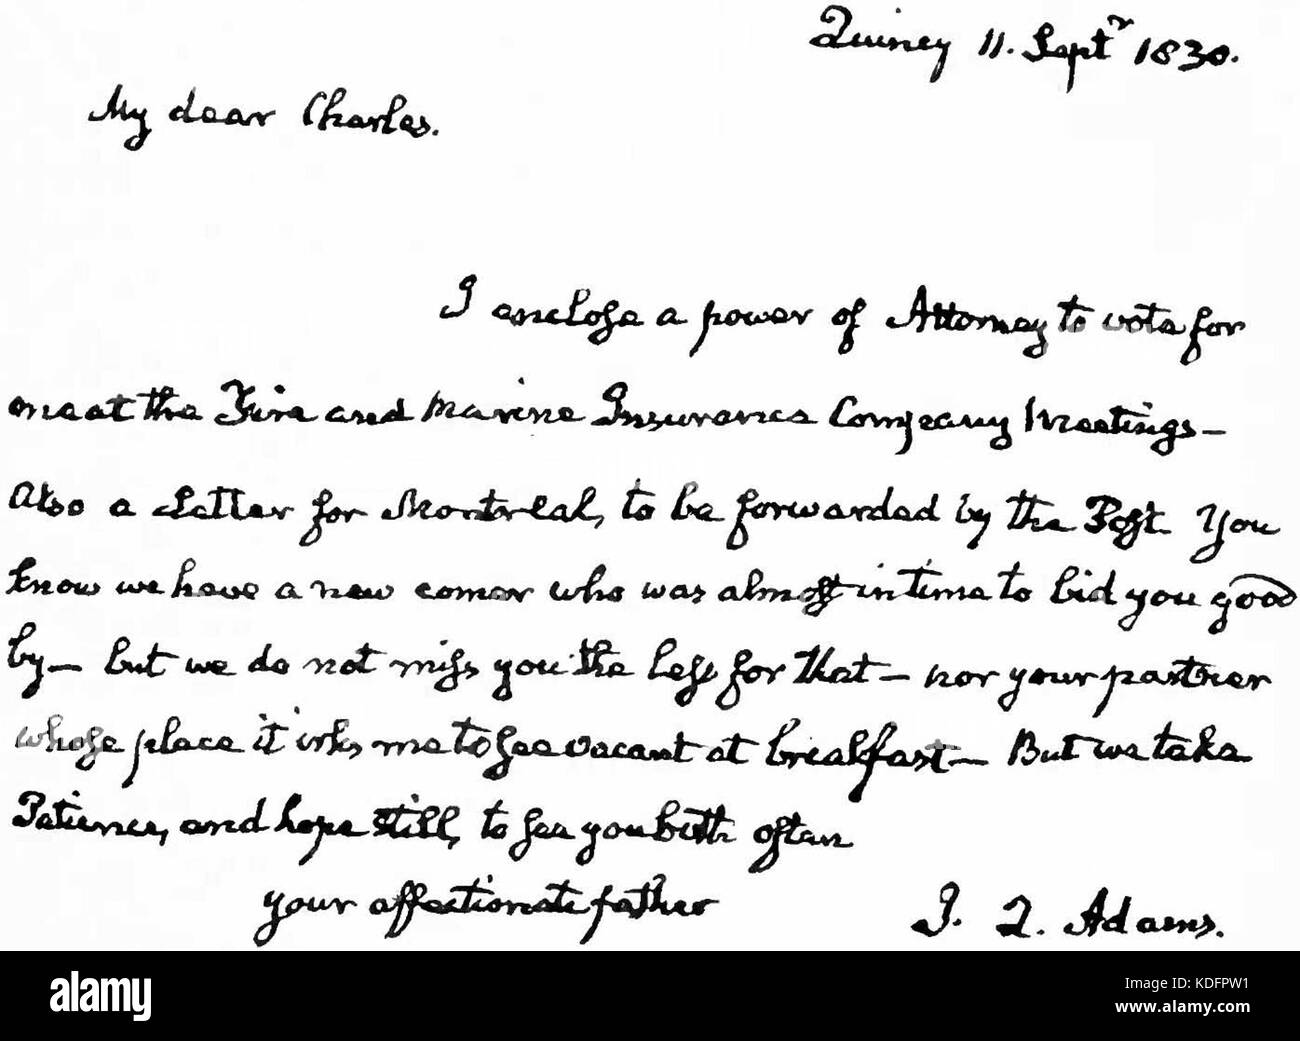 Quincy 11. Septr 1830.
My dear Charles.
I enclose a power of Attorney to vote for
me at the Fire and Marine Insurance Company Meetings—
Also a Letter for Montreal, to be forwarded by the Post. You
know we have a new comer who was almost in time to bid you good
by— but we do not miss you the less for that— nor your partner
whose place it irks me to see vacant at breakfast— But we take
Patience, and hope still, to see you both often
your affectionate father
J. Q. Adams.
alamy
Image ID: KDFPW1
www.alamy.com